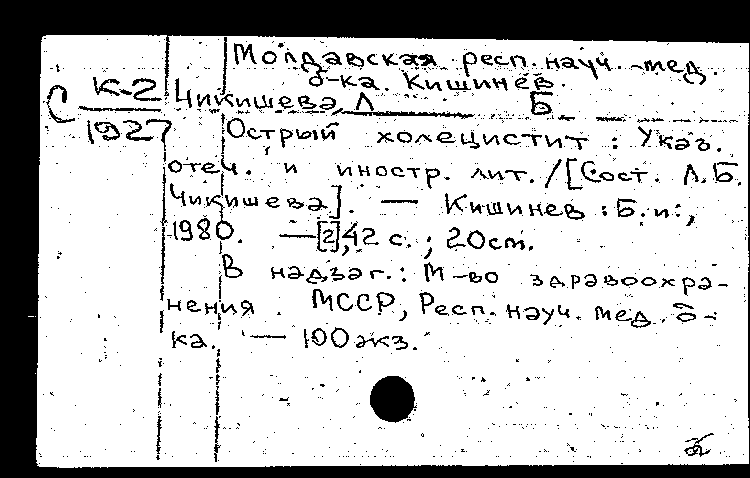 Молдавская респ. науч.-мед.
б-ка. Кишинев.
С К-2
1927
Чикишева, Л Б.
Острый холецистит : Указ.
отеч. и иностр. лит. / [Сост. Л.Б.
Чикишева]. — Кишинев : Б.и.,
1980. — [2], 42 с. ; 20 cm.
В надзаг.: М-во здравоохра-
нения МССР, Респ. науч. мед. б-
ка. — 100 экз.